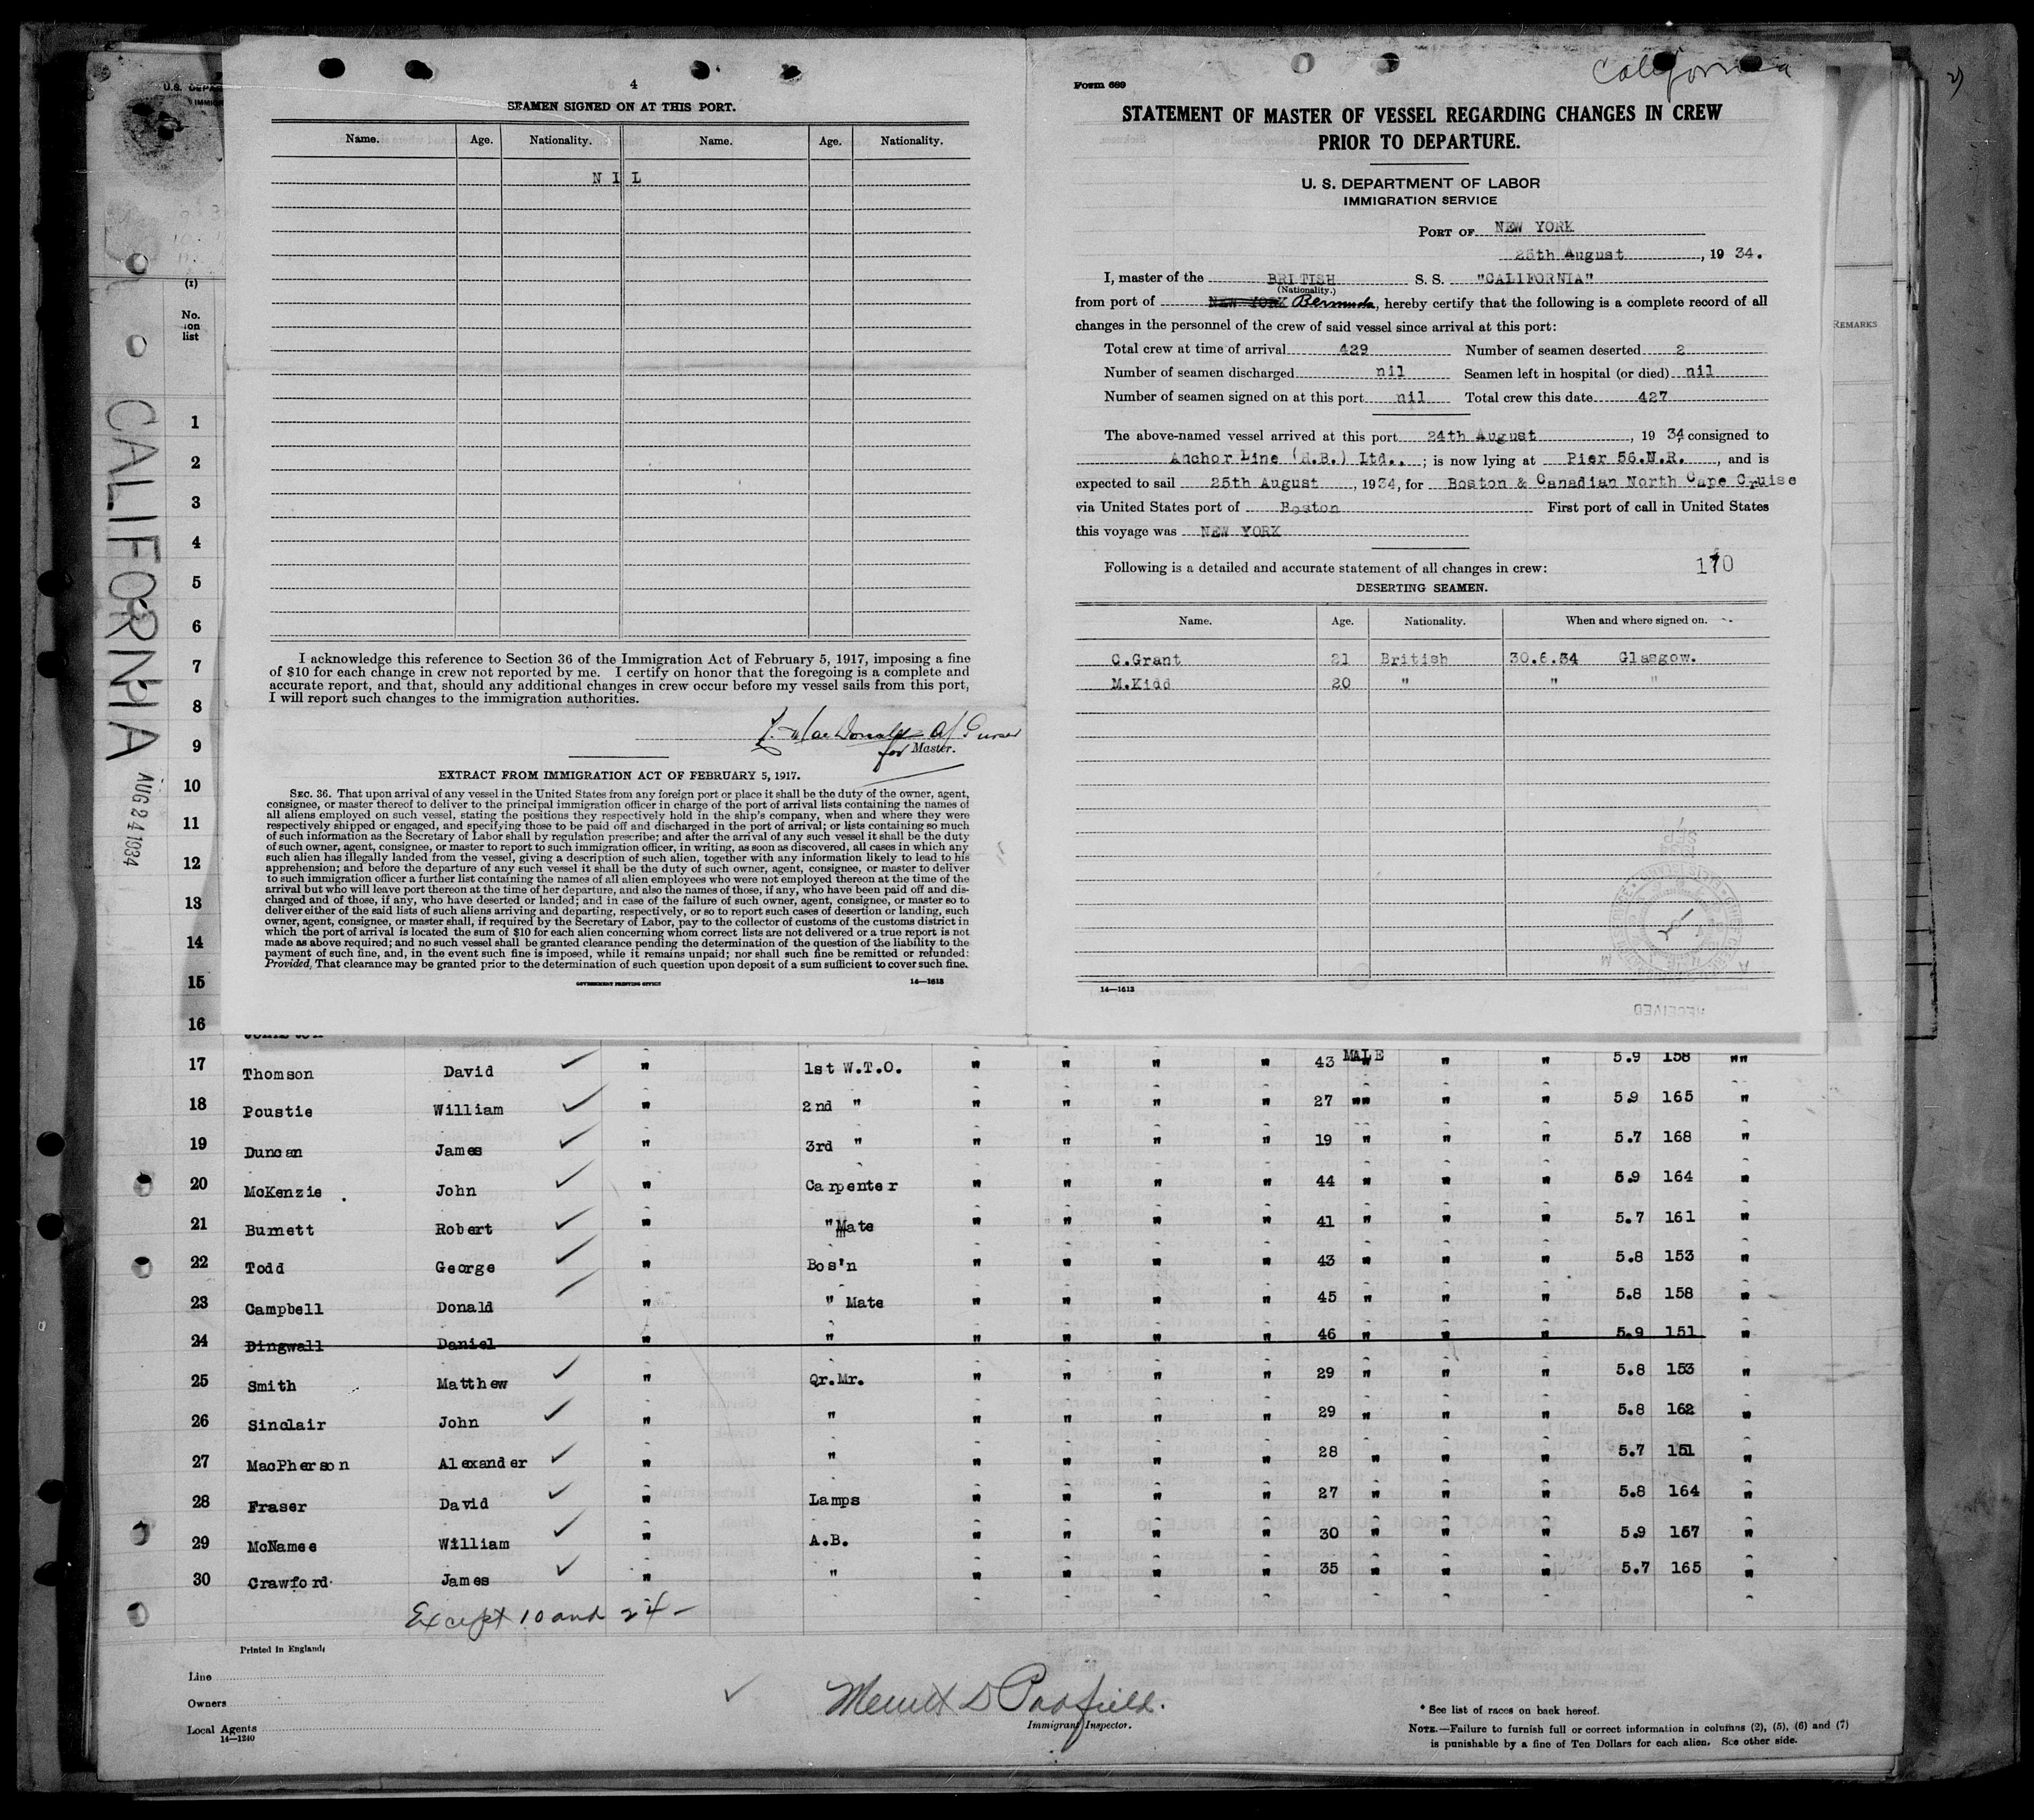 4
SEAMEN SIGNED ON AT THIS PORT.
Name. Age. Nationality. Name. Age. Nationality.
NIL
I acknowledge this reference to Section 36 of the Immigration Act of February 5, 1917, imposing a fine
of $10 for each change in crew not reported by me. I certify on honor that the foregoing is a complete and
accurate report, and that, should any additional changes in crew occur before my vessel sails from this port,
I will report such changes to the immigration authorities.
MacDonald A/Purser
for Master.
EXTRACT FROM IMMIGRATION ACT OF FEBRUARY 5, 1917.
SEC. 36. That upon arrival of any vessel in the United States from any foreign port or place it shall be the duty of the owner, agent,
consignee, or master thereof to deliver to the principal immigration officer in charge of the port of arrival lists containing the names of
all aliens employed on such vessel, stating the positions they respectively hold in the ship's company, when and where they were
respectively shipped or engaged, and specifying those to be paid off and discharged in the port of arrival; or lists containing so much
of such information as the Secretary of Labor shall by regulation prescribe; and after the arrival of any such vessel it shall be the duty
of such owner, agent, consignee, or master to report to such immigration officer, in writing, as soon as discovered, all cases in which any
such alien has illegally landed from the vessel, giving a description of such alien, together with any information likely to lead to his
apprehension; and before the departure of any such vessel it shall be the duty of such owner, agent, consignee, or master to deliver
to such immigration officer a further list containing the names of all alien employees who were not employed thereon at the time of the
arrival but who will leave port thereon at the time of her departure, and also the names of those, if any, who have been paid off and dis-
charged and of those, if any, who have deserted or landed; and in case of the failure of such owner, agent, consignee, or master so to
deliver either of the said lists of such aliens arriving and departing, respectively, or so to report such cases of desertion or landing, such
owner, agent, consignee, or master shall, if required by the Secretary of Labor, pay to the collector of customs of the customs district in
which the port of arrival is located the sum of $10 for each alien concerning whom correct lists are not delivered or a true report is not
made as above required; and no such vessel shall be granted clearance pending the determination of the question of the liability to the
payment of such fine, and, in the event such fine is imposed, while it remains unpaid; nor shall such fine be remitted or refunded:
Provided, That clearance may be granted prior to the determination of such question upon deposit of a sum sufficient to cover such fine.
GOVERNMENT PRINTING OFFICE 14—1613
California
Form 689
STATEMENT OF MASTER OF VESSEL REGARDING CHANGES IN CREW
PRIOR TO DEPARTURE.
U. S. DEPARTMENT OF LABOR
IMMIGRATION SERVICE
PORT OF NEW YORK
25th August, 1934.
I, master of the BRITISH S. S. "CALIFORNIA"
(Nationality.)
from port of NEW YORK Bermuda, hereby certify that the following is a complete record of all
changes in the personnel of the crew of said vessel since arrival at this port:
Total crew at time of arrival 429 Number of seamen deserted 2
Number of seamen discharged nil Seamen left in hospital (or died) nil
Number of seamen signed on at this port nil Total crew this date 427
The above-named vessel arrived at this port 24th August, 1934 consigned to
Anchor Line (H.B.) Ltd.. ; is now lying at Pier 56.N.R. , and is
expected to sail 25th August, 1934, for Boston & Canadian North Cape Cruise
via United States port of Boston First port of call in United States
this voyage was NEW YORK
Following is a detailed and accurate statement of all changes in crew: 170
DESERTING SEAMEN.
Name. Age. Nationality. When and where signed on.
C.Grant 21 British 30.6.34 Glasgow.
M.Kidd 20 " " "
14—1613
RECEIVED
REMARKS
U.S. DEPA
IMMIG
(1)
No.
list
CALIFORNIA
AUG 24 1934
1
2
3
4
5
6
7
8
9
10
11
12
13
14
15
16
17 Thomson David " 1st W.T.O. " " " " 43 MALE " " 5.9 158 ""
18 Poustie William " 2nd " " " " " 27 "" " " 5.9 165 "
19 Duncan James " 3rd " " " " " 19 " " " 5.7 168 "
20 McKenzie John " Carpenter " " " " 44 " " " 5.9 164 "
21 Burnett Robert " " Mate " " " " 41 " " " 5.7 161 "
22 Todd George " Bos'n " " " " 43 " " " 5.8 153 "
23 Campbell Donald " " Mate " " " " 45 " " " 5.8 158 "
24 Dingwall Daniel " " " " " " 46 " " " 5.9 151 "
25 Smith Matthew " Qr.Mr. " " " " 29 " " " 5.8 153 "
26 Sinclair John " " " " " " 29 " " " 5.8 162 "
27 MacPherson Alexander " " " " " " 28 " " " 5.7 151 "
28 Fraser David " Lamps " " " " 27 " " " 5.8 164 "
29 McNamee William " A.B. " " " " 30 " " " 5.9 167 "
30 Crawford James " " " " " " 35 " " " 5.7 165 "
Except 10 and 24 -
Printed in England.
Line
Owners
Local Agents
14—1240
Merritt D Padfield.
Immigrant Inspector.
* See list of races on back hereof.
NOTE.—Failure to furnish full or correct information in columns (2), (5), (6) and (7)
is punishable by a fine of Ten Dollars for each alien. See other side.